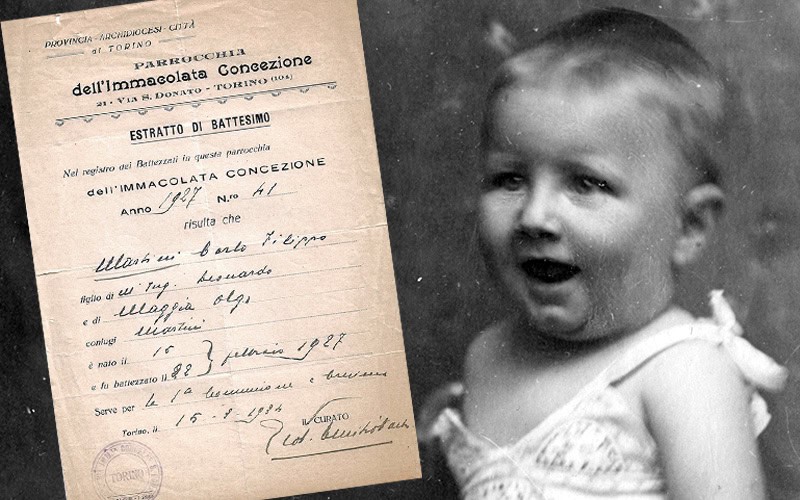 PROVINCIA - ARCHIDIOCESI - CITTÀ
di TORINO
PARROCCHIA
dell'Immacolata Concezione
21 - VIA S. DONATO - TORINO (104)
ESTRATTO DI BATTESIMO
Nel registro dei Battezzati in questa parrocchia
dell'IMMACOLATA CONCEZIONE
Anno 1927 N.ro 41
risulta che
Martini Carlo Filippo
figlio di Ing. Leonardo
e di Maggia Olga
coniugi Martini
è nato il 15
febbraio 1927
e fu battezzato il 22
Serve per la 1ª Comunione e
Torino, il 15-3-1934
IL CURATO
TORINO